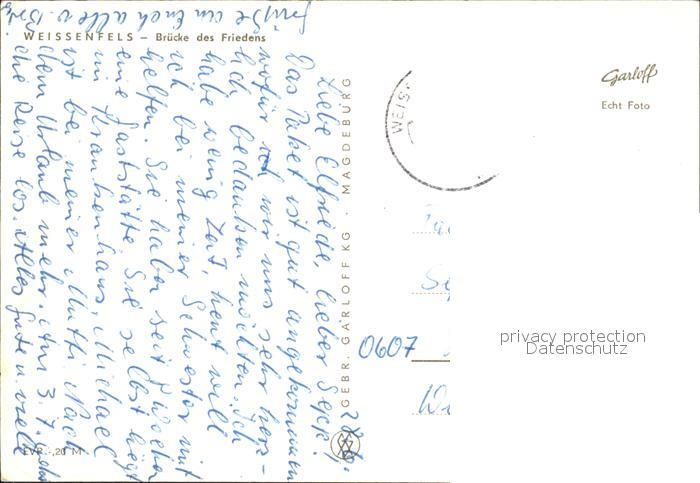 WEISSENFELS – Brücke des Friedens
Garloff
Echt Foto
WEIS
GEBR. GARLOFF KG · MAGDEBURG
EVP -,20 M
Liebe Elfriede, lieber Sepp!
Das Paket ist gut angekommen
wofür wir uns sehr herz-
lich bedanken möchten. Ich
habe wenig Zeit, heut will
ich bei meiner Schwester mit
helfen. Sie haben seit
eine Gaststätte. Sie selbst liegt
im Krankenhaus, Michael
ist bei meiner Mutti. Nach
dem Urlaub mehr. Am 3.7. geht
die Reise los. Alles Gute u. viele
Grüße an Euch alle v.
0607
privacy protection
Datenschutz